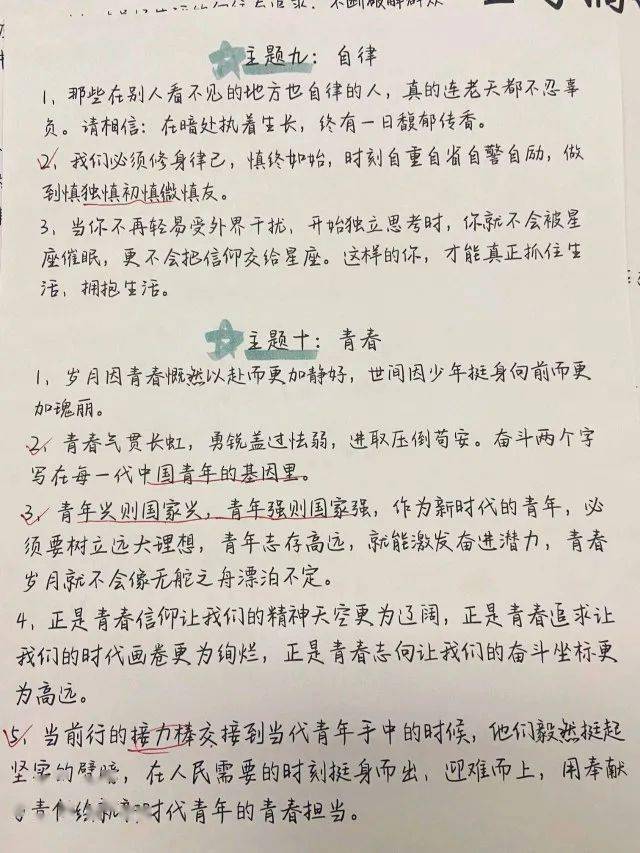 不断破解群众
主题九：自律
1、那些在别人看不见的地方也自律的人，真的连老天都不忍辜
负。请相信：在暗处执着生长，终有一日馥郁传香。
2、我们必须修身律己，慎终如始，时刻自重自省自警自励，做
到慎独慎初慎微慎友。
3、当你不再轻易受外界干扰，开始独立思考时，你就不会被星
座催眠，更不会把信仰交给星座。这样的你，才能真正抓住生
活，拥抱生活。
主题十：青春
1、岁月因青春慨然以赴而更加静好，世间因少年挺身向前而更
加瑰丽。
2、青春气贯长虹，勇锐盖过怯弱，进取压倒苟安。奋斗两个字
写在每一代中国青年的基因里。
3、青年兴则国家兴，青年强则国家强，作为新时代的青年，必
须要树立远大理想，青年志存高远，就能激发奋进潜力，青春
岁月就不会像无舵之舟漂泊不定。
4、正是青春信仰让我们的精神天空更为辽阔，正是青春追求让
我们的时代画卷更为绚烂，正是青春志向让我们的奋斗坐标更
为高远。
5、当前行的接力棒交接到当代青年手中的时候，他们毅然挺起
坚实的臂膀，在人民需要的时刻挺身而出，迎难而上，用奉献
时代青年的青春担当。